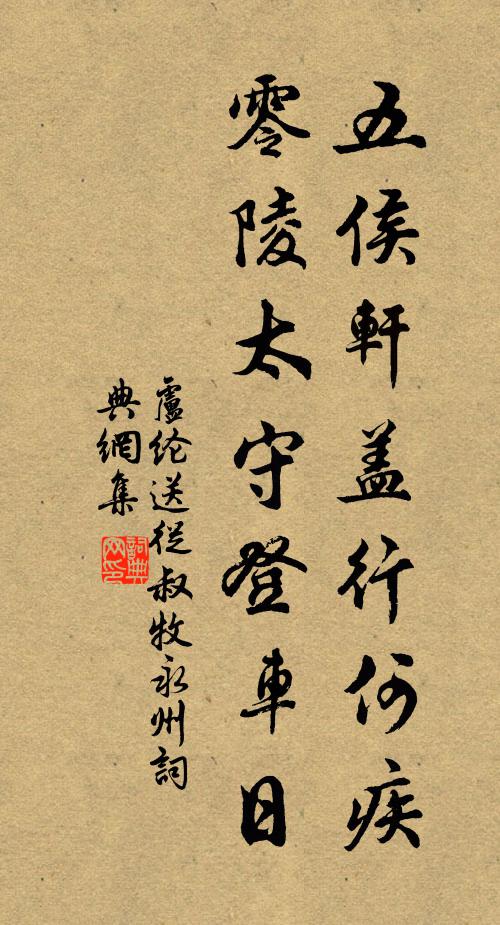 五侯軒盖行何疾
零陵太守登車日
盧纶送從叔牧永州詞
典網集
詞典網印